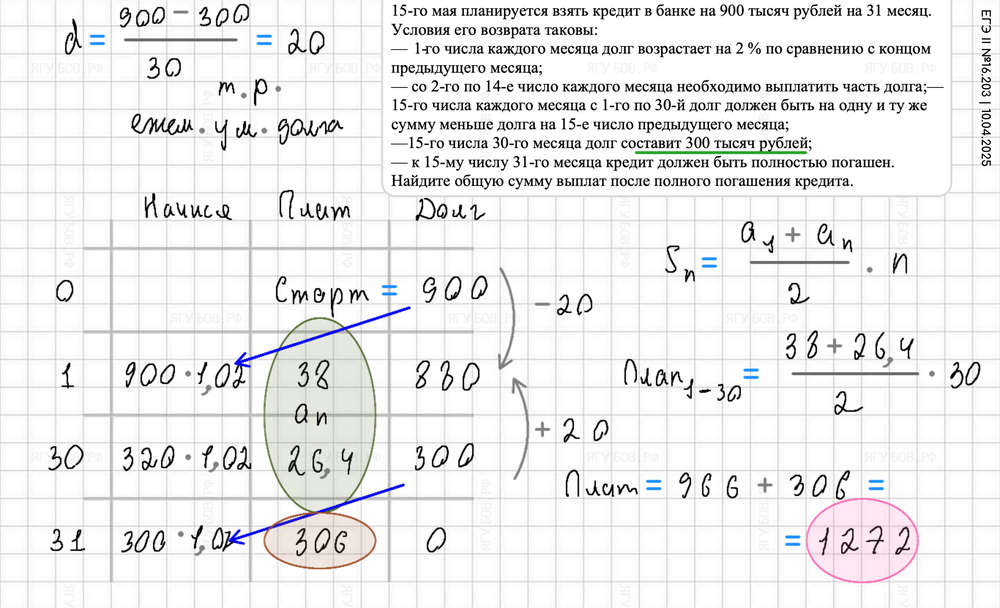 15-го мая планируется взять кредит в банке на 900 тысяч рублей на 31 месяц.
Условия его возврата таковы:
— 1-го числа каждого месяца долг возрастает на 2 % по сравнению с концом
предыдущего месяца;
— со 2-го по 14-е число каждого месяца необходимо выплатить часть долга;—
15-го числа каждого месяца с 1-го по 30-й долг должен быть на одну и ту же
сумму меньше долга на 15-е число предыдущего месяца;
—15-го числа 30-го месяца долг составит 300 тысяч рублей;
— к 15-му числу 31-го месяца кредит должен быть полностью погашен.
Найдите общую сумму выплат после полного погашения кредита.
ЕГЭ II №16.203 | 10.04.2025
d = (900 - 300) / 30 = 20
т.р.
ежем. ум. долга
Начисл Плат Долг
0 Старт = 900
- 20
1 900 · 1,02 38 880
an
+ 20
30 320 · 1,02 26,4 300
31 300 · 1,02 306 0
Sn = (a1 + an) / 2 · n
Плат1-30 = (38 + 26,4) / 2 · 30
Плат = 966 + 306 =
= 1272
ЯГУБОВ.РФ